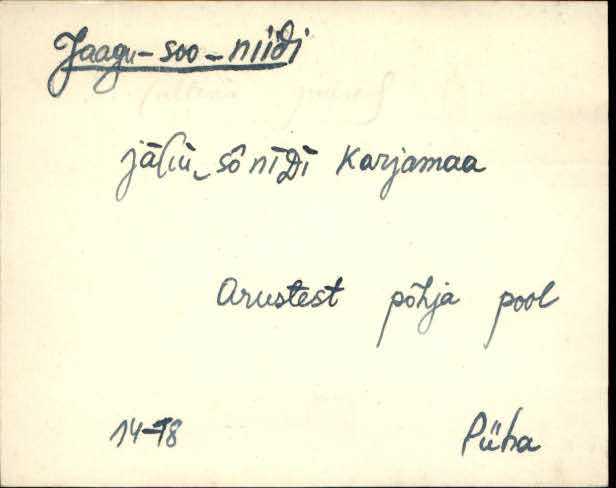 Jaagu-soo-niidi
sô nīDī Karjamaa
Arustest põhja pool
14-18 Püha